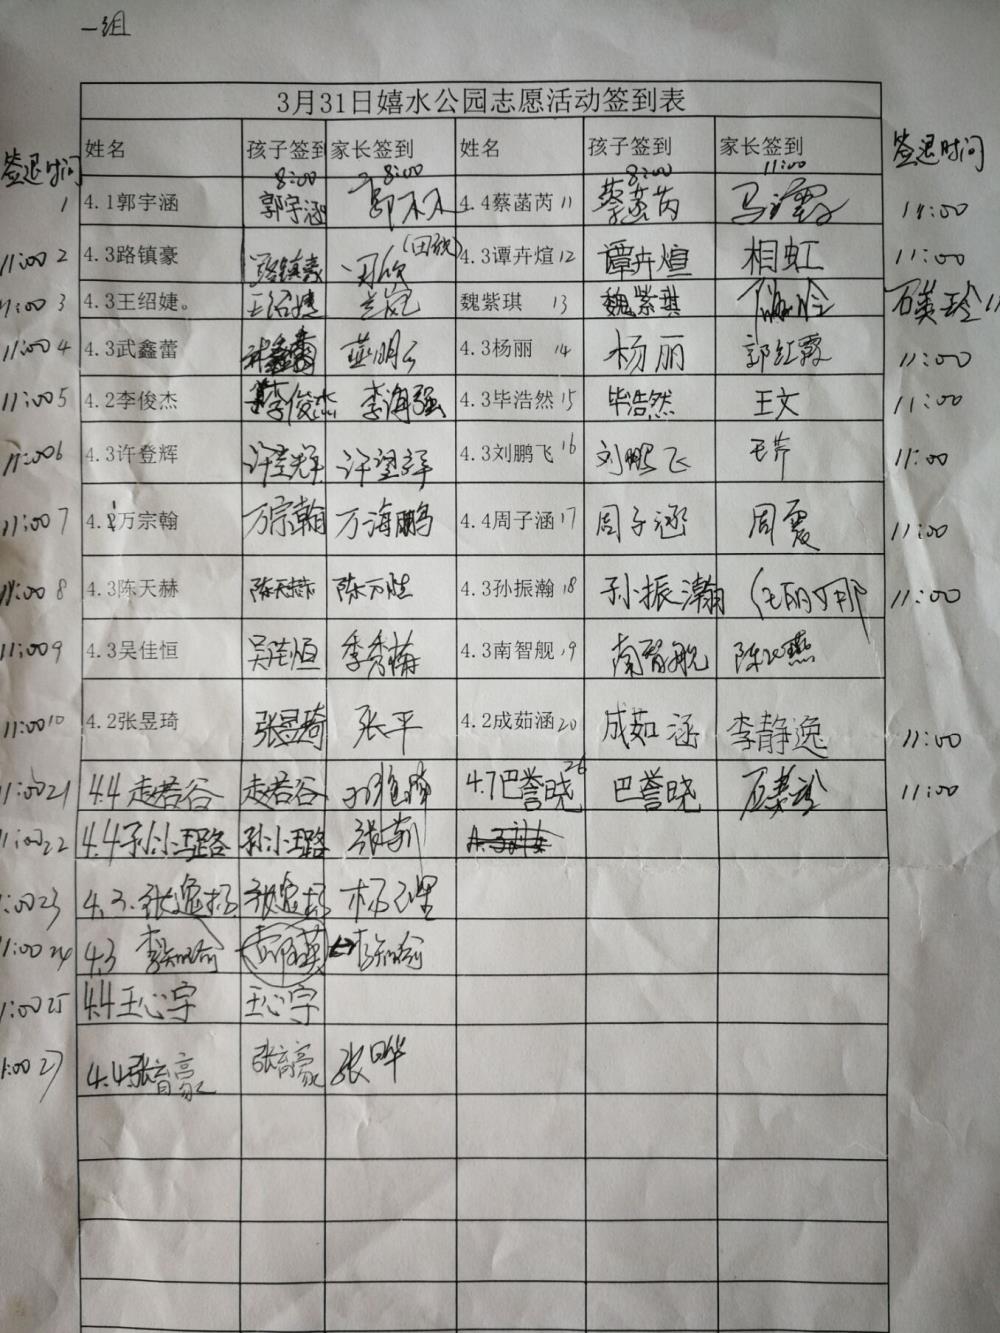 一组
3月31日嬉水公园志愿活动签到表
签退时间 姓名 孩子签到 家长签到 姓名 孩子签到 家长签到 签退时间
8:00 8:00 8:00 11:00
1 4.1郭宇涵 郭宇涵 4.4蔡菡芮 11 蔡菡芮 马 11:00
11:00 2 4.3路镇豪 路镇豪 4.3谭卉煊 12 谭卉煊 相虹 11:00
11:00 3 4.3王绍婕。 王绍婕 魏紫琪 13 魏紫琪
11:00 4 4.3武鑫蕾 武鑫蕾 4.3杨丽 14 杨丽 郭红霞 11:00
11:00 5 4.2李俊杰 李俊杰 李海强 4.3毕浩然 15 毕浩然 王文 11:00
11:00 6 4.3许登辉 许登辉 许望辉 4.3刘鹏飞 16 刘鹏飞 毛芹 11:00
11:00 7 4.1万宗翰 万宗翰 万海鹏 4.4周子涵 17 周子涵 周霞 11:00
11:00 8 4.3陈天赫 陈天赫 陈万胜 4.3孙振瀚 18 孙振瀚 11:00
11:00 9 4.3吴佳恒 吴佳恒 季秀梅 4.3南智舰 19 南智舰
11:00 10 4.2张昱琦 张昱琦 张平 4.2成茹涵 20 成茹涵 李静逸 11:00
11:00 21 4.4 赵若谷 赵若谷 4.7巴誉晓 26 巴誉晓 11:00
11:00 22 4.4 张莉
1:00 23 4.3
11:00 24 4.3 李知瑜 李知瑜
1:00 25 4.4王心宇 王心宇
1:00 27 4.4张育豪 张育豪 张晔